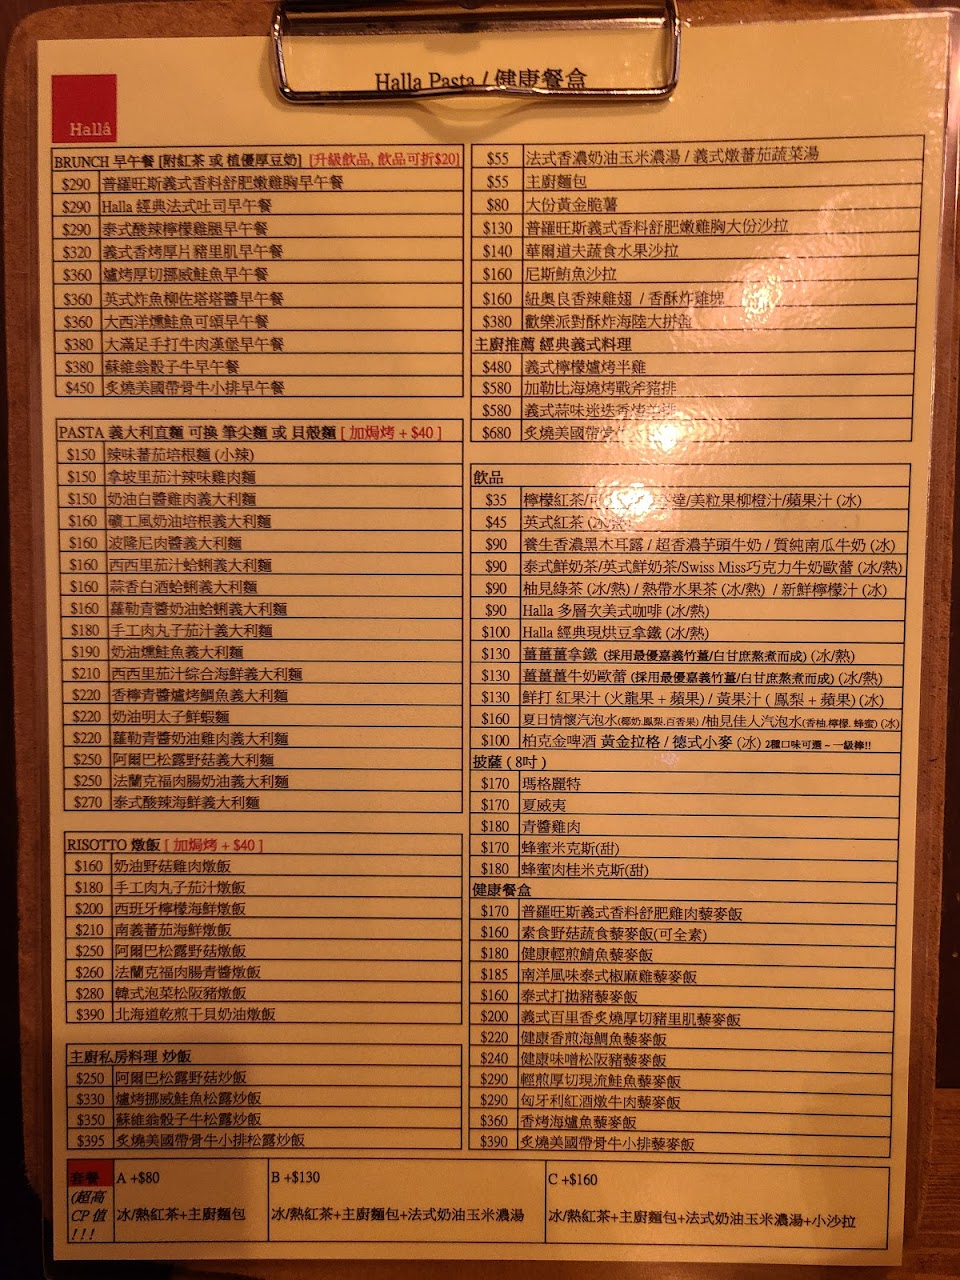 Halla Pasta / 健康餐盒
Hallå
BRUNCH 早午餐 [附紅茶 或 植優厚豆奶] [升級飲品, 飲品可折$20]
$290 普羅旺斯義式香料舒肥嫩雞胸早午餐
$290 Halla 經典法式吐司早午餐
$290 泰式酸辣檸檬雞腿早午餐
$320 義式香烤厚片豬里肌早午餐
$360 爐烤厚切挪威鮭魚早午餐
$360 英式炸魚柳佐塔塔醬早午餐
$360 大西洋燻鮭魚可頌早午餐
$380 大滿足手打牛肉漢堡早午餐
$380 蘇維翁骰子牛早午餐
$450 炙燒美國帶骨牛小排早午餐
PASTA 義大利直麵 可換 筆尖麵 或 貝殼麵 [ 加焗烤 + $40 ]
$150 辣味蕃茄培根麵 (小辣)
$150 拿坡里茄汁辣味雞肉麵
$150 奶油白醬雞肉義大利麵
$160 礦工風奶油培根義大利麵
$160 波隆尼肉醬義大利麵
$160 西西里茄汁蛤蜊義大利麵
$160 蒜香白酒蛤蜊義大利麵
$160 蘿勒青醬奶油蛤蜊義大利麵
$180 手工肉丸子茄汁義大利麵
$190 奶油燻鮭魚義大利麵
$210 西西里茄汁綜合海鮮義大利麵
$220 香檸青醬爐烤鯛魚義大利麵
$220 奶油明太子鮮蝦麵
$220 蘿勒青醬奶油雞肉義大利麵
$250 阿爾巴松露野菇義大利麵
$250 法蘭克福肉腸奶油義大利麵
$270 泰式酸辣海鮮義大利麵
RISOTTO 燉飯 [ 加焗烤 + $40 ]
$160 奶油野菇雞肉燉飯
$180 手工肉丸子茄汁燉飯
$200 西班牙檸檬海鮮燉飯
$210 南義蕃茄海鮮燉飯
$250 阿爾巴松露野菇燉飯
$260 法蘭克福肉腸青醬燉飯
$280 韓式泡菜松阪豬燉飯
$390 北海道乾煎干貝奶油燉飯
主廚私房料理 炒飯
$250 阿爾巴松露野菇炒飯
$330 爐烤挪威鮭魚松露炒飯
$350 蘇維翁骰子牛松露炒飯
$395 炙燒美國帶骨牛小排松露炒飯
$55 法式香濃奶油玉米濃湯 / 義式燉蕃茄蔬菜湯
$55 主廚麵包
$80 大份黃金脆薯
$130 普羅旺斯義式香料舒肥嫩雞胸大份沙拉
$140 華爾道夫蔬食水果沙拉
$160 尼斯鮪魚沙拉
$160 紐奧良香辣雞翅 / 香酥炸雞塊
$380 歡樂派對酥炸海陸大拼盤
主廚推薦 經典義式料理
$480 義式檸檬爐烤半雞
$580 加勒比海燒烤戰斧豬排
$580 義式蒜味迷迭香烤羊排
$680 炙燒美國帶骨牛
飲品
$35 檸檬紅茶/可 達/美粒果柳橙汁/蘋果汁 (冰)
$45 英式紅茶 (冰/熱)
$90 養生香濃黑木耳露 / 超香濃芋頭牛奶 / 質純南瓜牛奶 (冰)
$90 泰式鮮奶茶/英式鮮奶茶/Swiss Miss巧克力牛奶歐蕾 (冰/熱)
$90 柚見綠茶 (冰/熱) / 熱帶水果茶 (冰/熱) / 新鮮檸檬汁 (冰)
$90 Halla 多層次美式咖啡 (冰/熱)
$100 Halla 經典現烘豆拿鐵 (冰/熱)
$130 薑薑薑拿鐵 (採用最優嘉義竹薑/白甘庶熬煮而成) (冰/熱)
$130 薑薑薑牛奶歐蕾 (採用最優嘉義竹薑/白甘庶熬煮而成) (冰/熱)
$130 鮮打 紅果汁 (火龍果 + 蘋果) / 黃果汁 ( 鳳梨 + 蘋果) (冰)
$160 夏日情懷汽泡水(椰奶.鳳梨.百香果) /柚見佳人汽泡水(香柚.檸檬. 蜂蜜) (冰)
$100 柏克金啤酒 黃金拉格 / 德式小麥 (冰) 2種口味可選 ~ 一級棒!!
披薩 ( 8吋 )
$170 瑪格麗特
$170 夏威夷
$180 青醬雞肉
$170 蜂蜜米克斯(甜)
$180 蜂蜜肉桂米克斯(甜)
健康餐盒
$170 普羅旺斯義式香料舒肥雞肉藜麥飯
$160 素食野菇蔬食藜麥飯(可全素)
$180 健康輕煎鯖魚藜麥飯
$185 南洋風味泰式椒麻雞藜麥飯
$160 泰式打拋豬藜麥飯
$200 義式百里香炙燒厚切豬里肌藜麥飯
$220 健康香煎海鯛魚藜麥飯
$240 健康味噌松阪豬藜麥飯
$290 輕煎厚切現流鮭魚藜麥飯
$290 匈牙利紅酒燉牛肉藜麥飯
$360 香烤海鱸魚藜麥飯
$390 炙燒美國帶骨牛小排藜麥飯
套餐 (超高CP 值 ! ! !
A +$80
冰/熱紅茶+主廚麵包
B +$130
冰/熱紅茶+主廚麵包+法式奶油玉米濃湯
C +$160
冰/熱紅茶+主廚麵包+法式奶油玉米濃湯+小沙拉